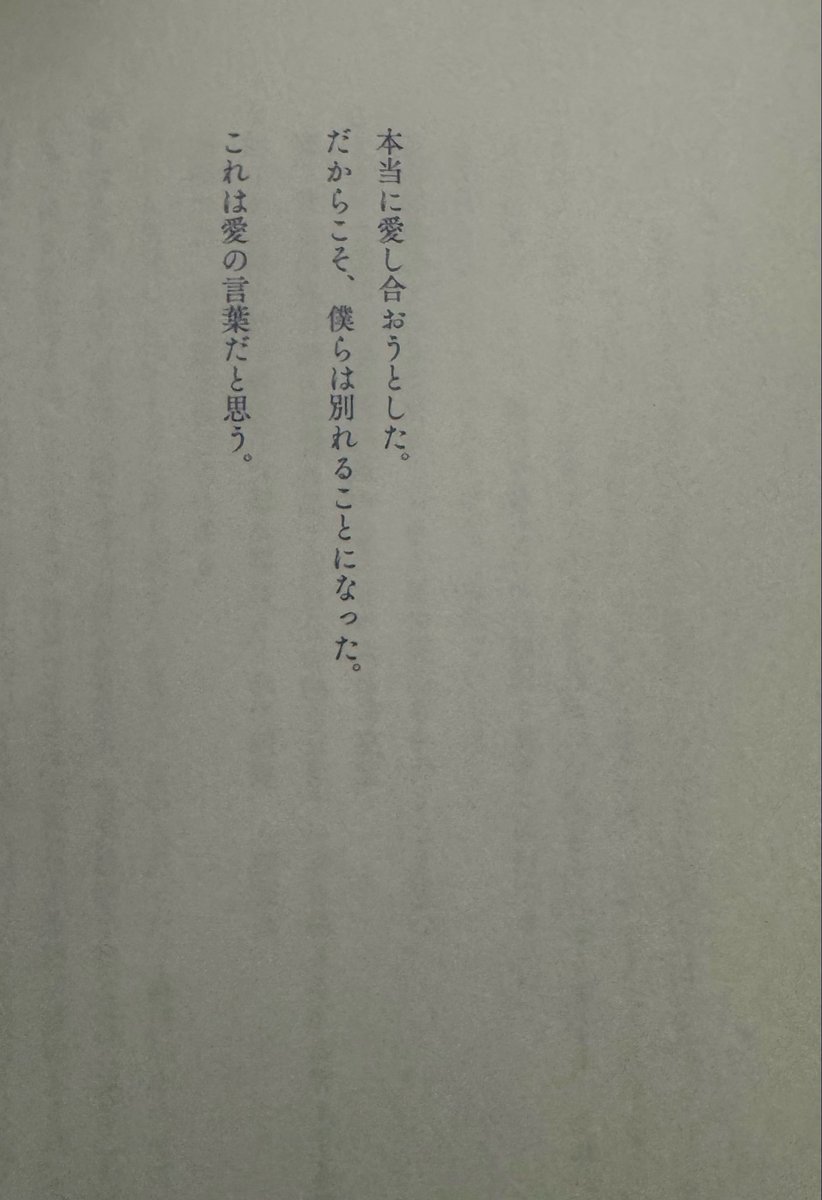 本当に愛し合おうとした。
だからこそ、僕らは別れることになった。
これは愛の言葉だと思う。